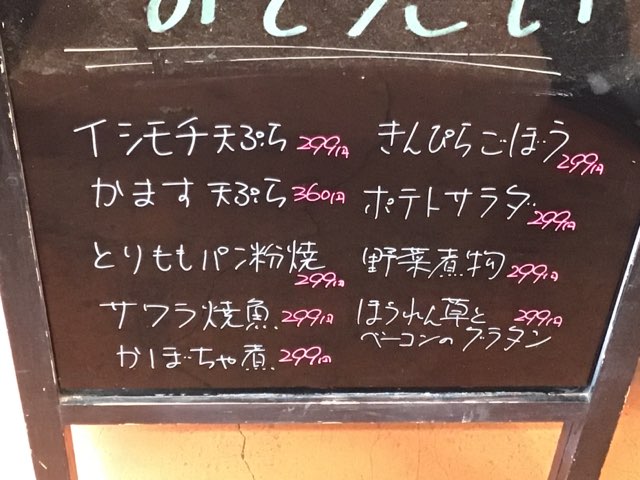 イシモチ天ぷら 299円
かます天ぷら 360円
とりももパン粉焼 299円
サワラ焼魚 299円
かぼちゃ煮 299円
きんぴらごぼう 299円
ポテトサラダ 299円
野菜煮物 299円
ほうれん草と 299円
ベーコンのグラタン